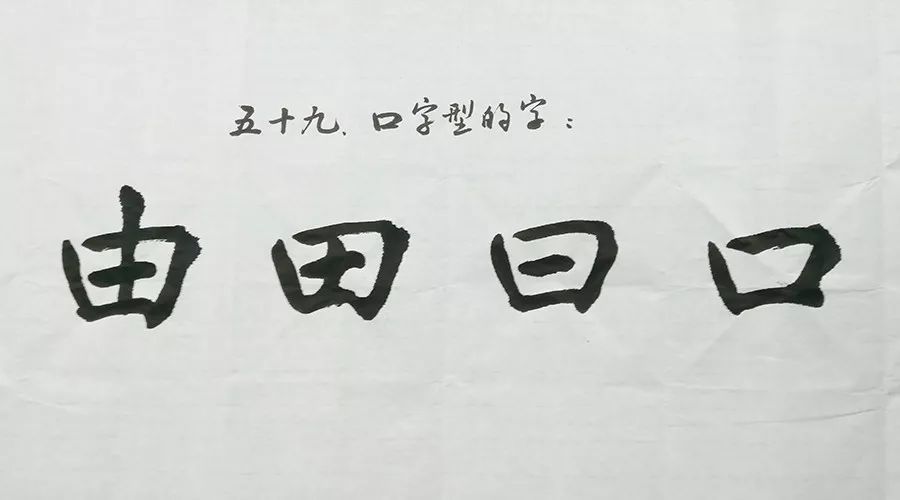 五十九、口字型的字：
由田曰口